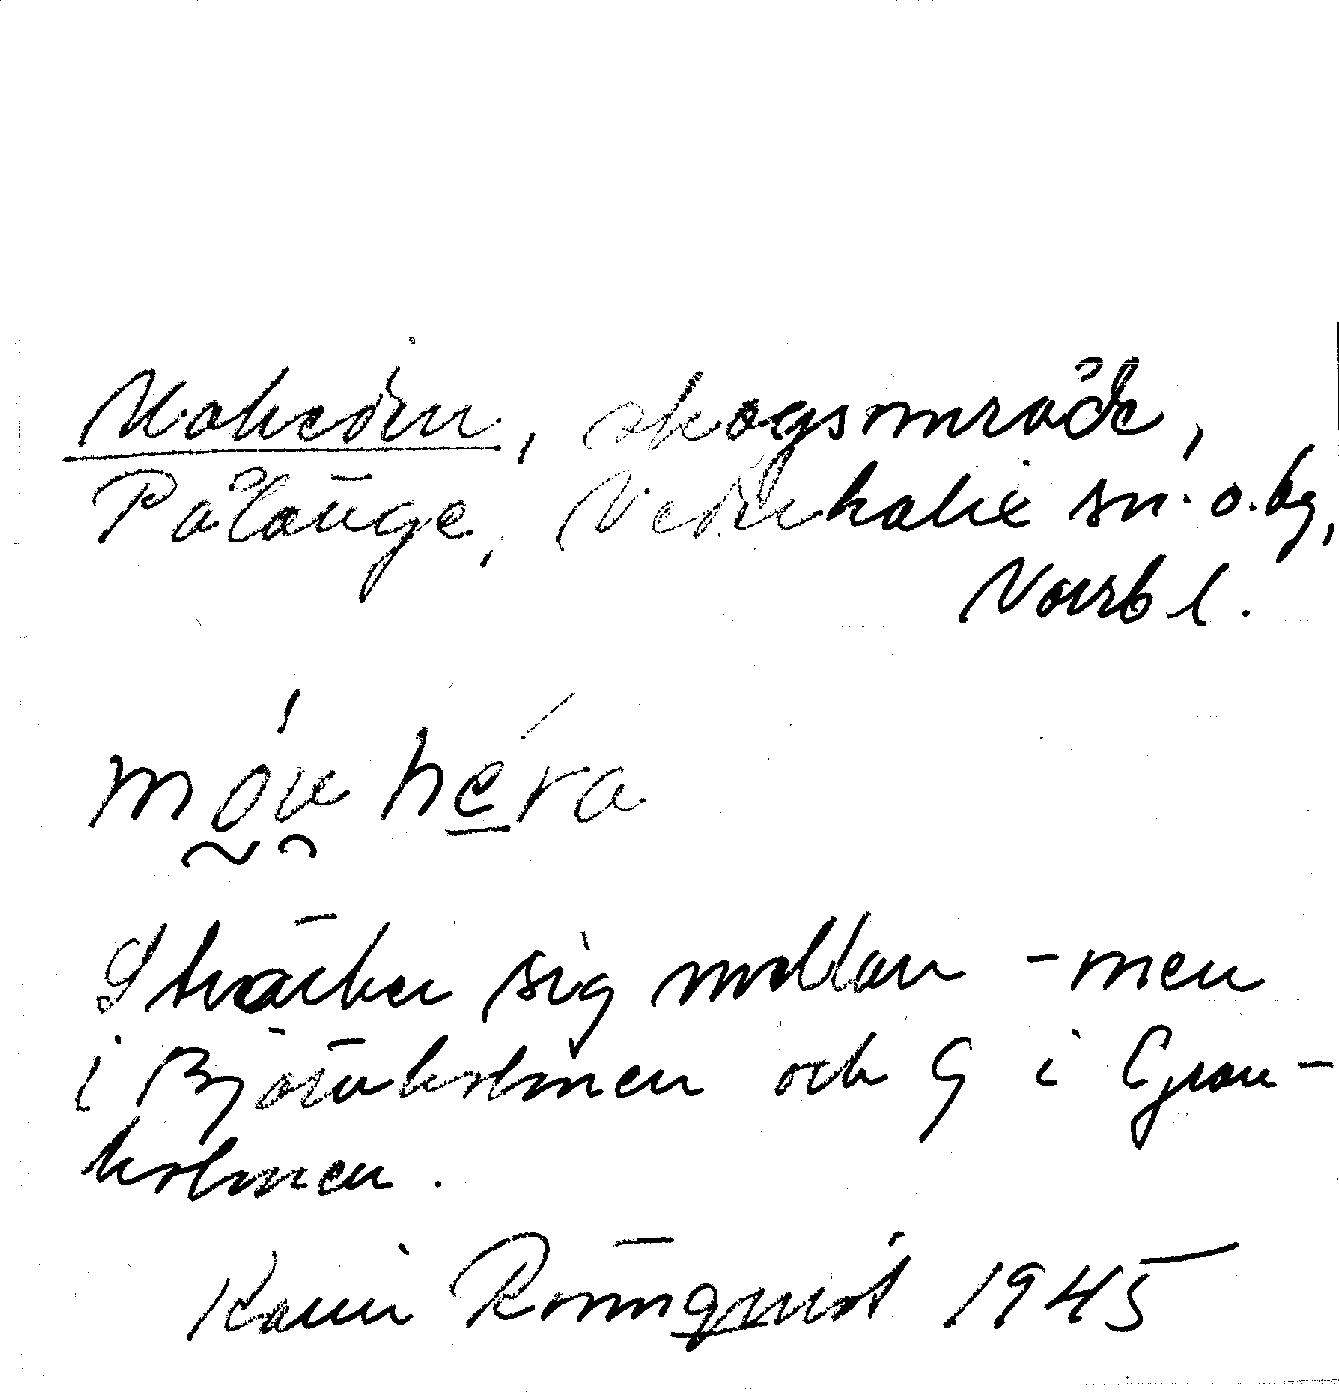 Moheden, skogsområde,
Pålänge, Nederkalix sn. o. bg,
Norrb l.
móu héra
Sträcker sig mellan -men
i Björnholmen och G i Gran-
holmen.
Karin Rönnqvist 1945